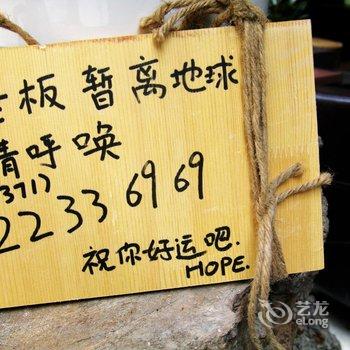 板暂离地球
请呼唤
2233 6969
祝你好运吧.
HOPE.
艺龙
eLong